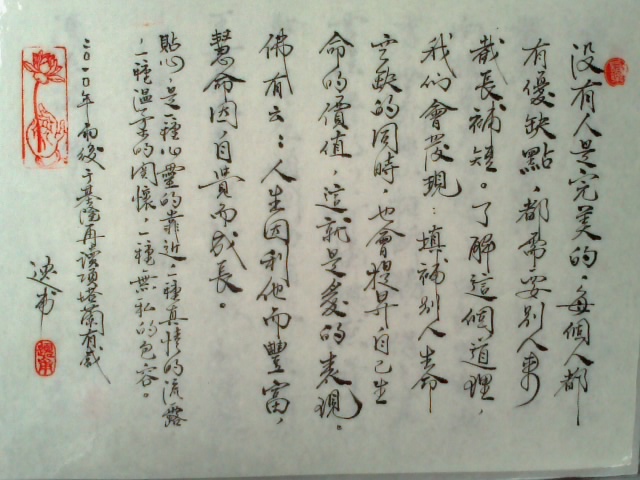 没有人是完美的，每個人都
有優缺點，都需要別人來
截長補短。了解這個道理，
我們會發現：填補別人生命
空缺的同時，也會提昇自己生
命的價值，這就是愛的表現。
佛有云：人生因利他而豐富，
慧命因自覺而成長。
貼心，是一種心靈的靠近，一種真情的流露
，一種溫柔的關懷，一種無私的包容。
二〇一〇年前後于基隆再讀有感